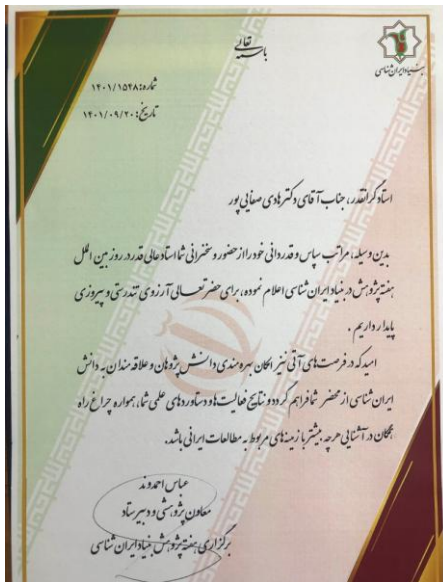 باسمه تعالی
بنیاد ایران‌شناسی
شماره: ۱۴۰۱/۱۵۴۸
تاریخ: ۱۴۰۱/۰۹/۲۰
استاد گرانقدر، جناب آقای دکتر هادی صفایی پور
بدین وسیله، مراتب سپاس و قدردانی خود را از حضور و سخنرانی شما استاد عالی قدر در روز بین الملل
هفته پژوهش در بنیاد ایران شناسی اعلام نموده، برای حضرتعالی آرزوی تندرستی و پیروزی
پایدار داریم.
امید که در فرصت‌های آتی نیز امکان بهره مندی دانش پژوهان و علاقه مندان به دانش
ایران شناسی از محضر شما فراهم گردد و نتایج فعالیت‌ها و دستاوردهای علمی شما، همواره چراغ راه
همگان در آشنایی هرچه بیشتر با زمینه‌های مربوط به مطالعات ایرانی باشد.
عباس احمدوند
معاون پژوهشی و دبیر ستاد
برگزاری هفته پژوهش بنیاد ایران شناسی